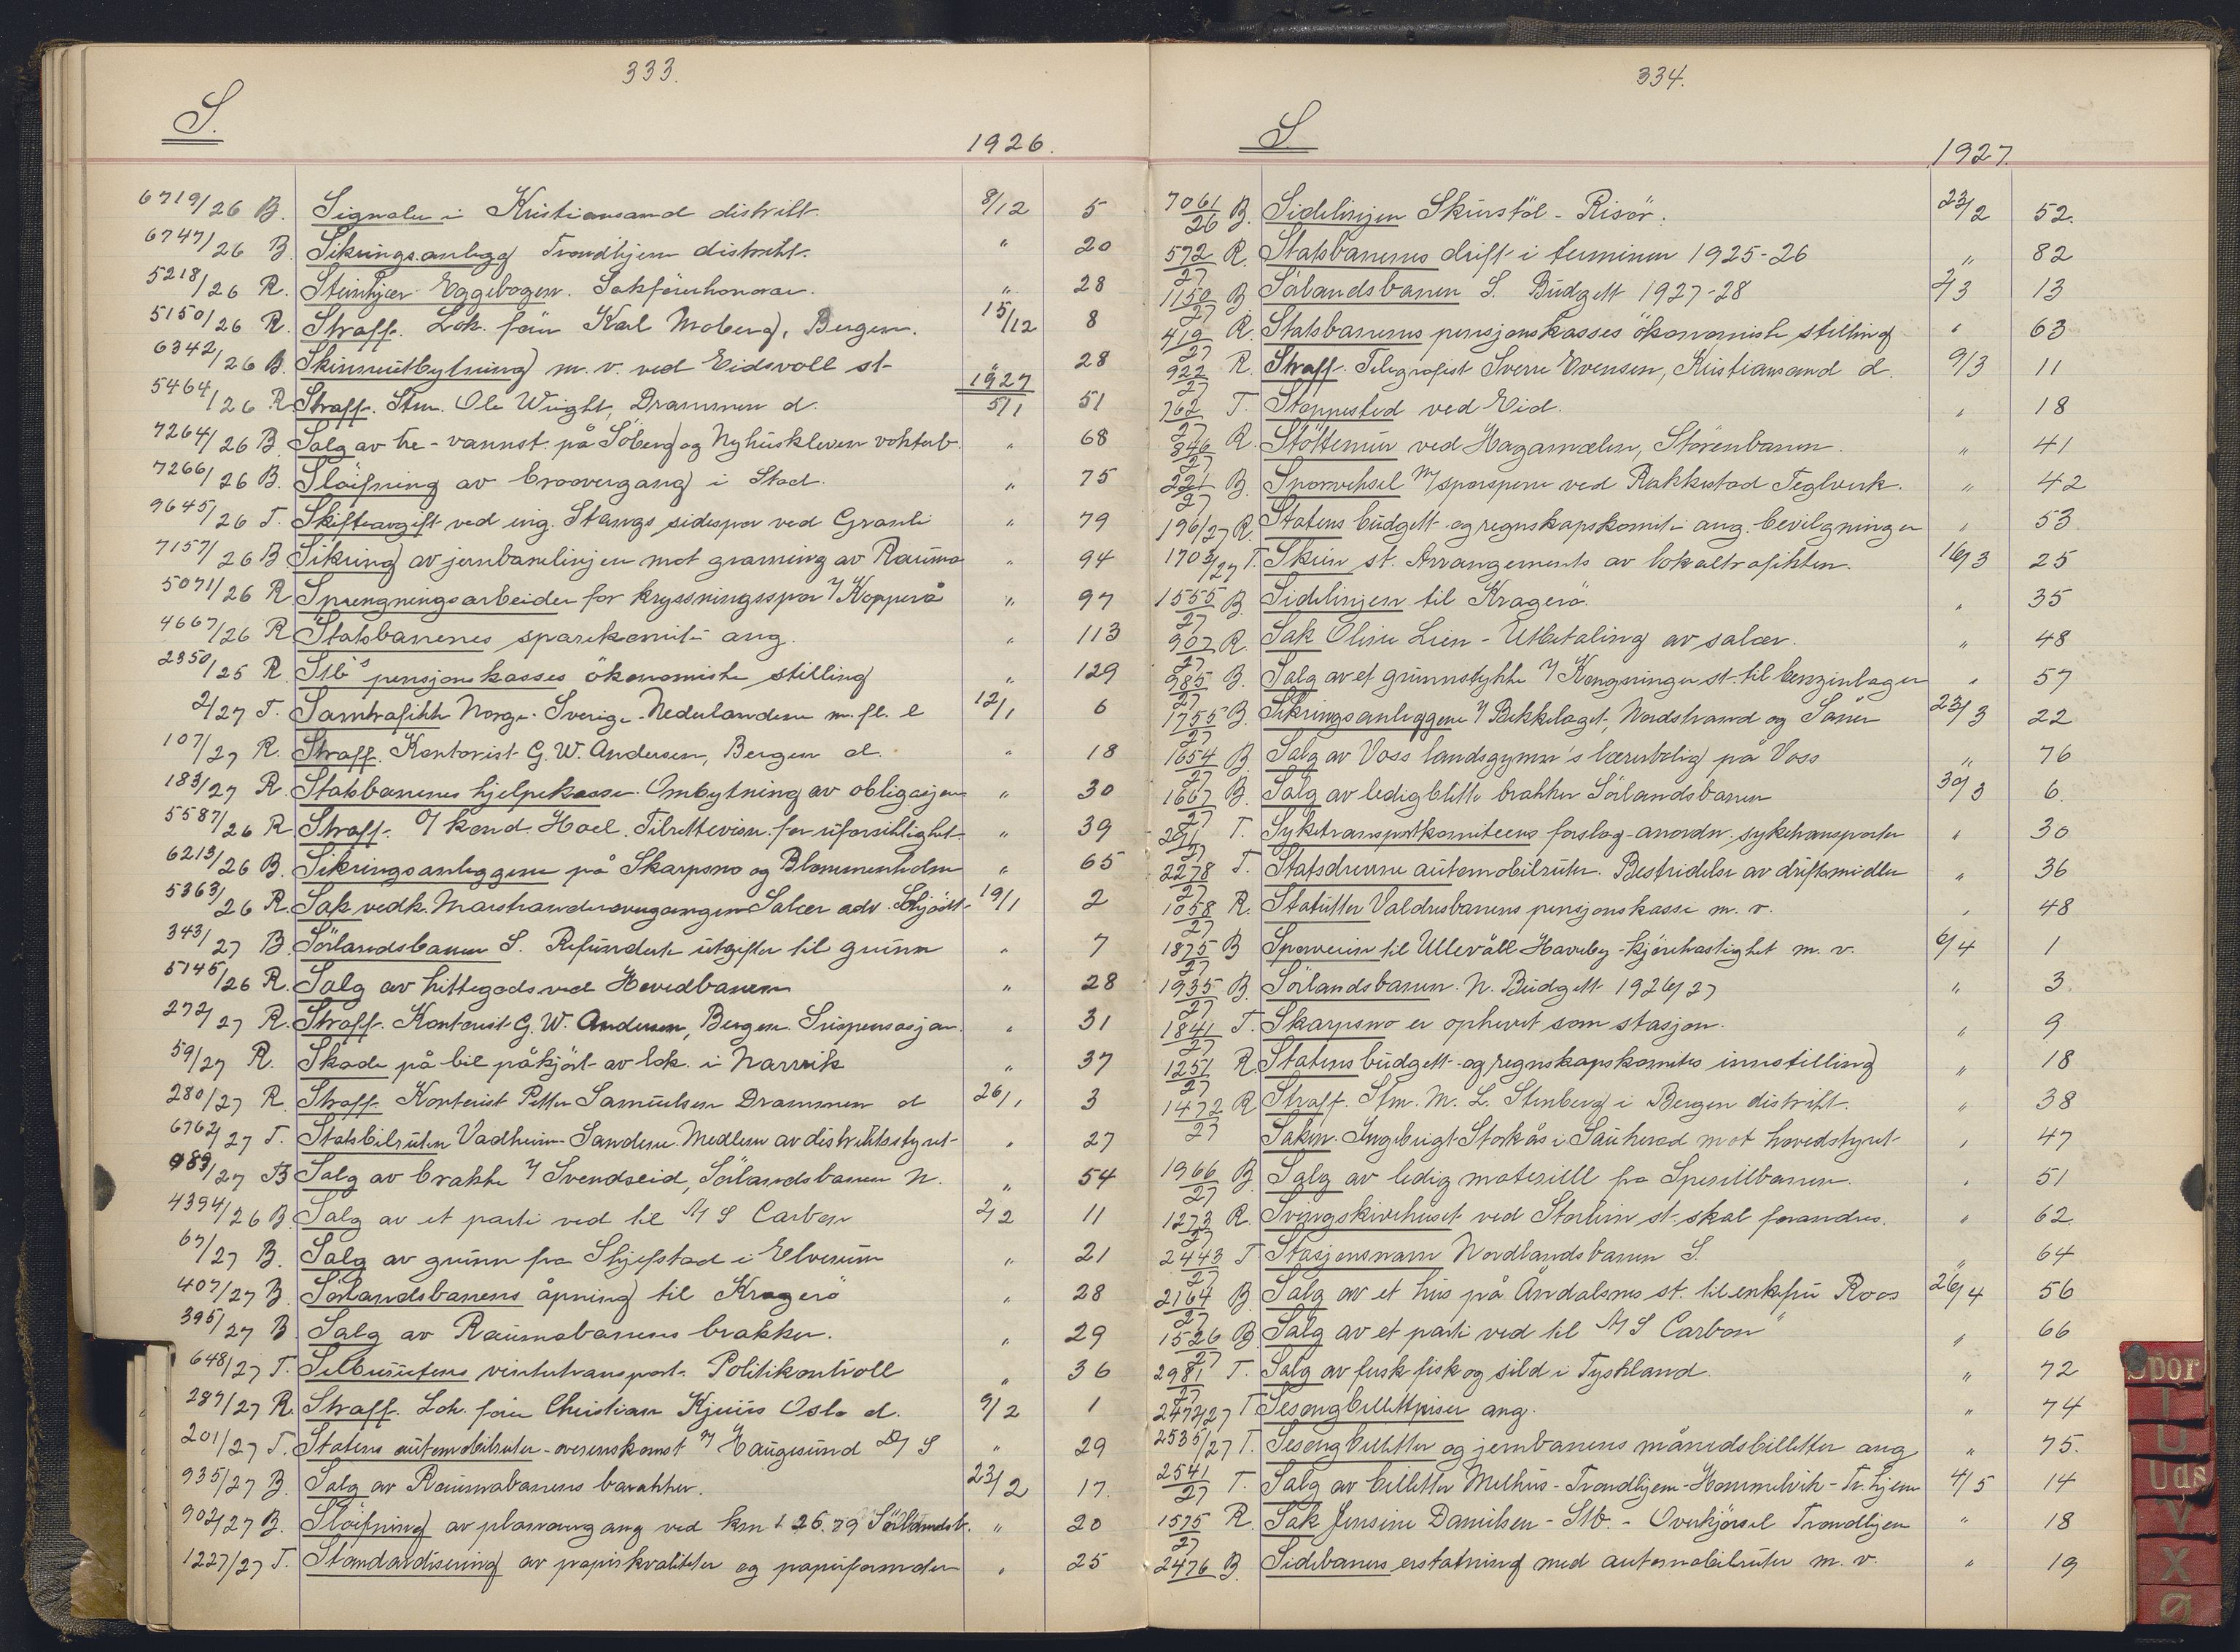 333.
S.
1926.
6719/26 B. Signaler i Kristiansand distrikt. 8/12 5
6747/26 B. Sikringsanlegg Trondhjem distrikt. " 20
5218/26 R. Steinkjær Eggebogen. Sakförerhonorar. " 28
5150/26 R. Straff. Lok. förer Karl Moberg, Bergen. 15/12 8
6342/26 B. Skinneutbytning m. v. ved Eidsvoll st. " 28
1927
5464/26 R Straff. Stm. Ole Wright, Drammen d. 5/1 51
7264/26 B. Salg av tre-vannst. på Söberg og Nyhuskleven vokterb. " 68
7266/26 B. Slöifning av broovergang i Stod. " 75
9645/26 T. Skifteavgift ved ing. Stangs sidespor ved Granli " 79
7157/26 B Sikring av jernbanelinjen mot graning av Rauma " 94
5071/26 R Sprengningsarbeider for kryssningsspor Kopperå " 97
4667/26 R Statsbanenes sparekomité ang. " 113
2350/25 R. Stb's pensjonskasses ökonomiske stilling " 129
2/27 T. Samtrafikk Norge-Sverige-Nederlandene m. fl. l 12/1 6
107/27 R. Straff. Kontorist G. W. Andersen, Bergen d. " 18
183/27 R. Statsbanenes hjelpekasse. Ombytning av obligasjoner " 30
5587/26 R Straff. kond. Hoel. Tilrettevisn. for uforsiktighet " 39
6213/26 B. Sikringsanleggene på Skarpsno og Blommenholm " 65
5363/26 R. Sak vedk. Marstranderovergangen Salær adv. 19/1 2
343/27 B. Sörlandsbanen S. Refunderte utgifter til grunn " 7
5145/26 R. Salg av hittegods ved Hovedbanen " 28
272/27 R. Straff. Kontorist G. W. Andersen, Bergen. Suspensasjon. " 31
59/27 R. Skade på bil påkjört av lok. i Narvik " 37
280/27 R Straff. Kontorist Petter Samuelsen Drammen d 26/1 3
6762/27 T. Statsbilruten Vadheim-Sandene. Medlem av distriktsstyret " 27
983/27 B Salg av brakke Svendseid, Sörlandsbanen N. " 54
4394/26 B. Salg av et parti ved til A/S Carbon 2/2 11
67/27 B. Salg av grunn fra Skjefstad i Elverum " 21
407/27 B. Sörlandsbanens åpning til Kragerö " 28
395/27 B. Salg av Raumabanens brakker. " 29
648/27 T. Selbuvitens vintertransport. Politikontroll " 36
287/27 R. Straff. Lok. förer Christian Kjuus Oslo d. 9/2 1
201/27 T. Statens automobilruter-overenskomst Haugesund D/S " 29
935/27 B. Salg av Raumabanens barakker. 23/2 17.
902/27 B. Slöifning av planovergang ved km 126.79 Sörlandsb. " 20
1227/27 T. Standardisering av papirkvaliteter og papirformater " 25
334.
S
1927
7061/26 B. Sidelinjen Skurstöl-Risör. 23/2 52.
572/27 R. Statsbanenes drift i terminen 1925-26 " 82
1150/27 B Sörlandsbanen S. Budgett 1927-28 2/3 13
419/27 R. Statsbanenes pensjonskasses ökonomiske stilling " 63
922/27 R. Straff. Telegrafist Sverre Evensen, Kristiansand d. 9/3 11
762/27 T. Stoppested ved Eid. " 18
846/27 R. Stöttemur ved Hagamælen, Störenbanen. " 41
221/27 B. Sporveksel m/sporsperre ved Rakkestad Teglverk. " 42
196/27 R. Statens budgett- og regnskapskomité ang. bevilgninger " 53
1703/27 T. Skien st. Arrangements av lokaltrafikken. 16/3 25
1555/27 B. Sidelinjen til Kragerö. " 35
907/27 R. Sak Oline Lien-Utbetaling av salær. " 48
985/27 B. Salg av et grunnstykke Kongsvinger st. til benzinlager " 57
1755/27 B. Sikringsanleggene Bekkelaget, Nordstrand og Saner 23/3 22
1654/27 B Salg av Voss landsgymn's lærerbolig på Voss " 76
1667/27 B. Salg av ledigblitte brakker Sörlandsbanen 30/3 6.
291/27 T. Syketransportkomiteens forslag-anordn. syketransporter " 30
2278/27 T. Statsdrevne automobilruter. Bestridelse av driftsmidler " 36
1058/27 R. Statutter Valdresbanens pensjonskasse m. v. " 48
1875/27 B Sporveien til Ullevål Haveby-kjörehastighet m. v. 6/4 1
1935/27 B. Sörlandsbanen. N. Budgett 1926/27 " 3
1841/27 T. Skarpsno er ophevet som stasjon. " 9
1251/27 R. Statens budgett- og regnskapskomités innstilling " 18
1472/27 R Straff. Stm. M. L. Stenberg i Bergen distrikt. " 38
Saken. Ingebrigt Storkås i Sauherad mot hovedstyret " 47
1966/27 B. Salg av ledig materiell fra Sperillbanen. " 51
1273/27 R. Svingskivehuset ved Storlien st. skal forandres. " 62
2443/27 T Stasjonsnavn Nordlandsbanen S. " 64
2164/27 B. Salg av et hus på Åndalsnes st. til enkefru Roos 26/4 56
1526/27 B. Salg av et parti ved til A/S Carbon" " 66
2981/27 T. Salg av fersk fisk og sild i Tyskland. " 72
2472/27 T Sesongbillettpriser ang. " 74
2535/27 T. Sesongbilletter og jernbanens månedsbilletter ang " 75.
2541/27 T. Salg av billetter Melhus-Trondhjem-Hommelvik-Tr.hjem 4/5 14
1575/27 R. Sak Jensine Danielsen-Stb.-Overkjörsel Trondhjem " 18
2476 B. Sidebaners erstatning med automobilruter m. v. " 19
Spor
T
U
Uds
V
X
Ø